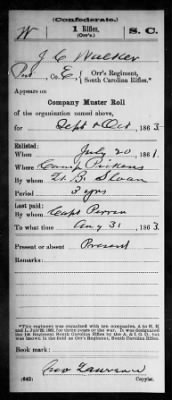 (Confederate.)
W 1 Rifles, S. C.
(Orr's.)
J C Walker
Pvt, Co. E, Orr's Regiment,
South Carolina Rifles.*
Appears on
Company Muster Roll
of the organization named above,
for Sept & Oct, 1863.
Enlisted:
When July 20, 1861.
Where Camp Pickens
By whom Lt. B. Sloan
Period 3 yrs
Last paid:
By whom Capt Perrin
To what time Aug 31, 1863.
Present or absent Present
Remarks:
Book mark:
(642) Copyist.